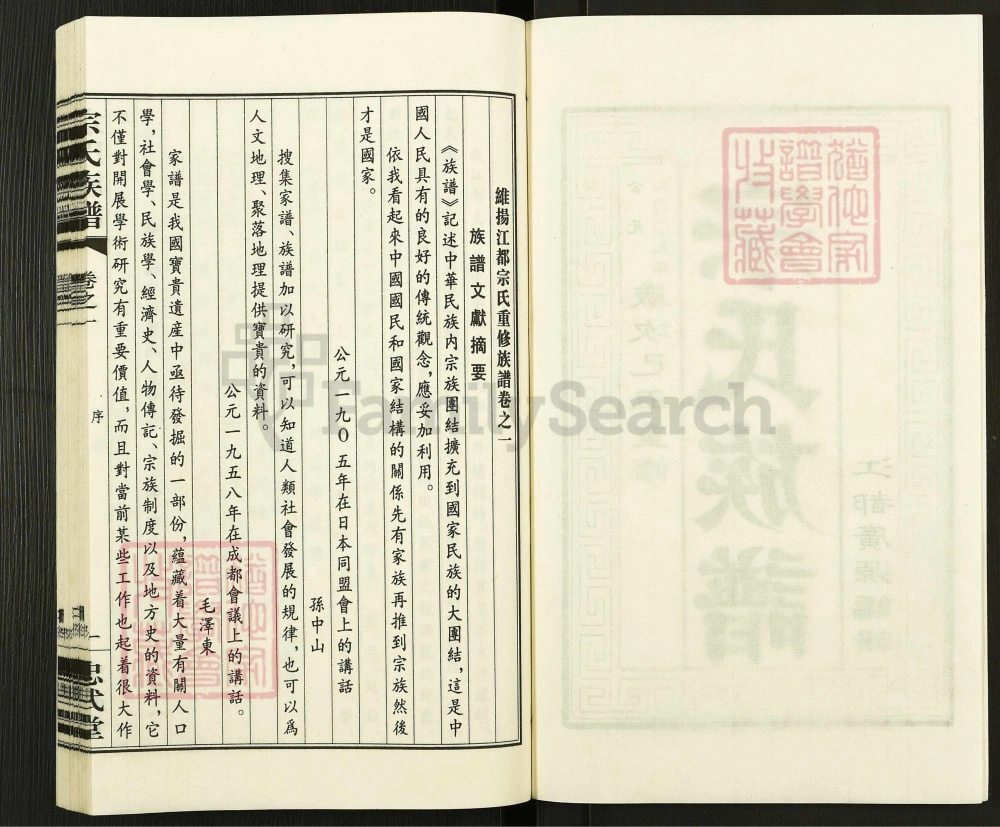 維揚江都宗氏重修族譜卷之一
族譜文獻摘要
《族譜》記述中華民族内宗族團結擴充到國家民族的大團結，這是中
國人民具有的良好的傳統觀念，應妥加利用。
依我看起來中國國民和國家結構的關係先有家族再推到宗族然後
才是國家。
公元一九〇五年在日本同盟會上的講話
孫中山
搜集家譜、族譜加以研究，可以知道人類社會發展的規律，也可以爲
人文地理、聚落地理提供寶貴的資料。
公元一九五八年在成都會議上的講話。
毛澤東
家譜是我國寶貴遺産中亟待發掘的一部份，蘊藏着大量有關人口
學，社會學、民族學、經濟史、人物傳記、宗族制度以及地方史的資料，它
不僅對開展學術研究有重要價值，而且對當前某些工作也起着很大作
宗氏族譜
卷之一
序
一
忠武堂
FamilySearch
江都廣源
氏族譜
譜學會
收藏